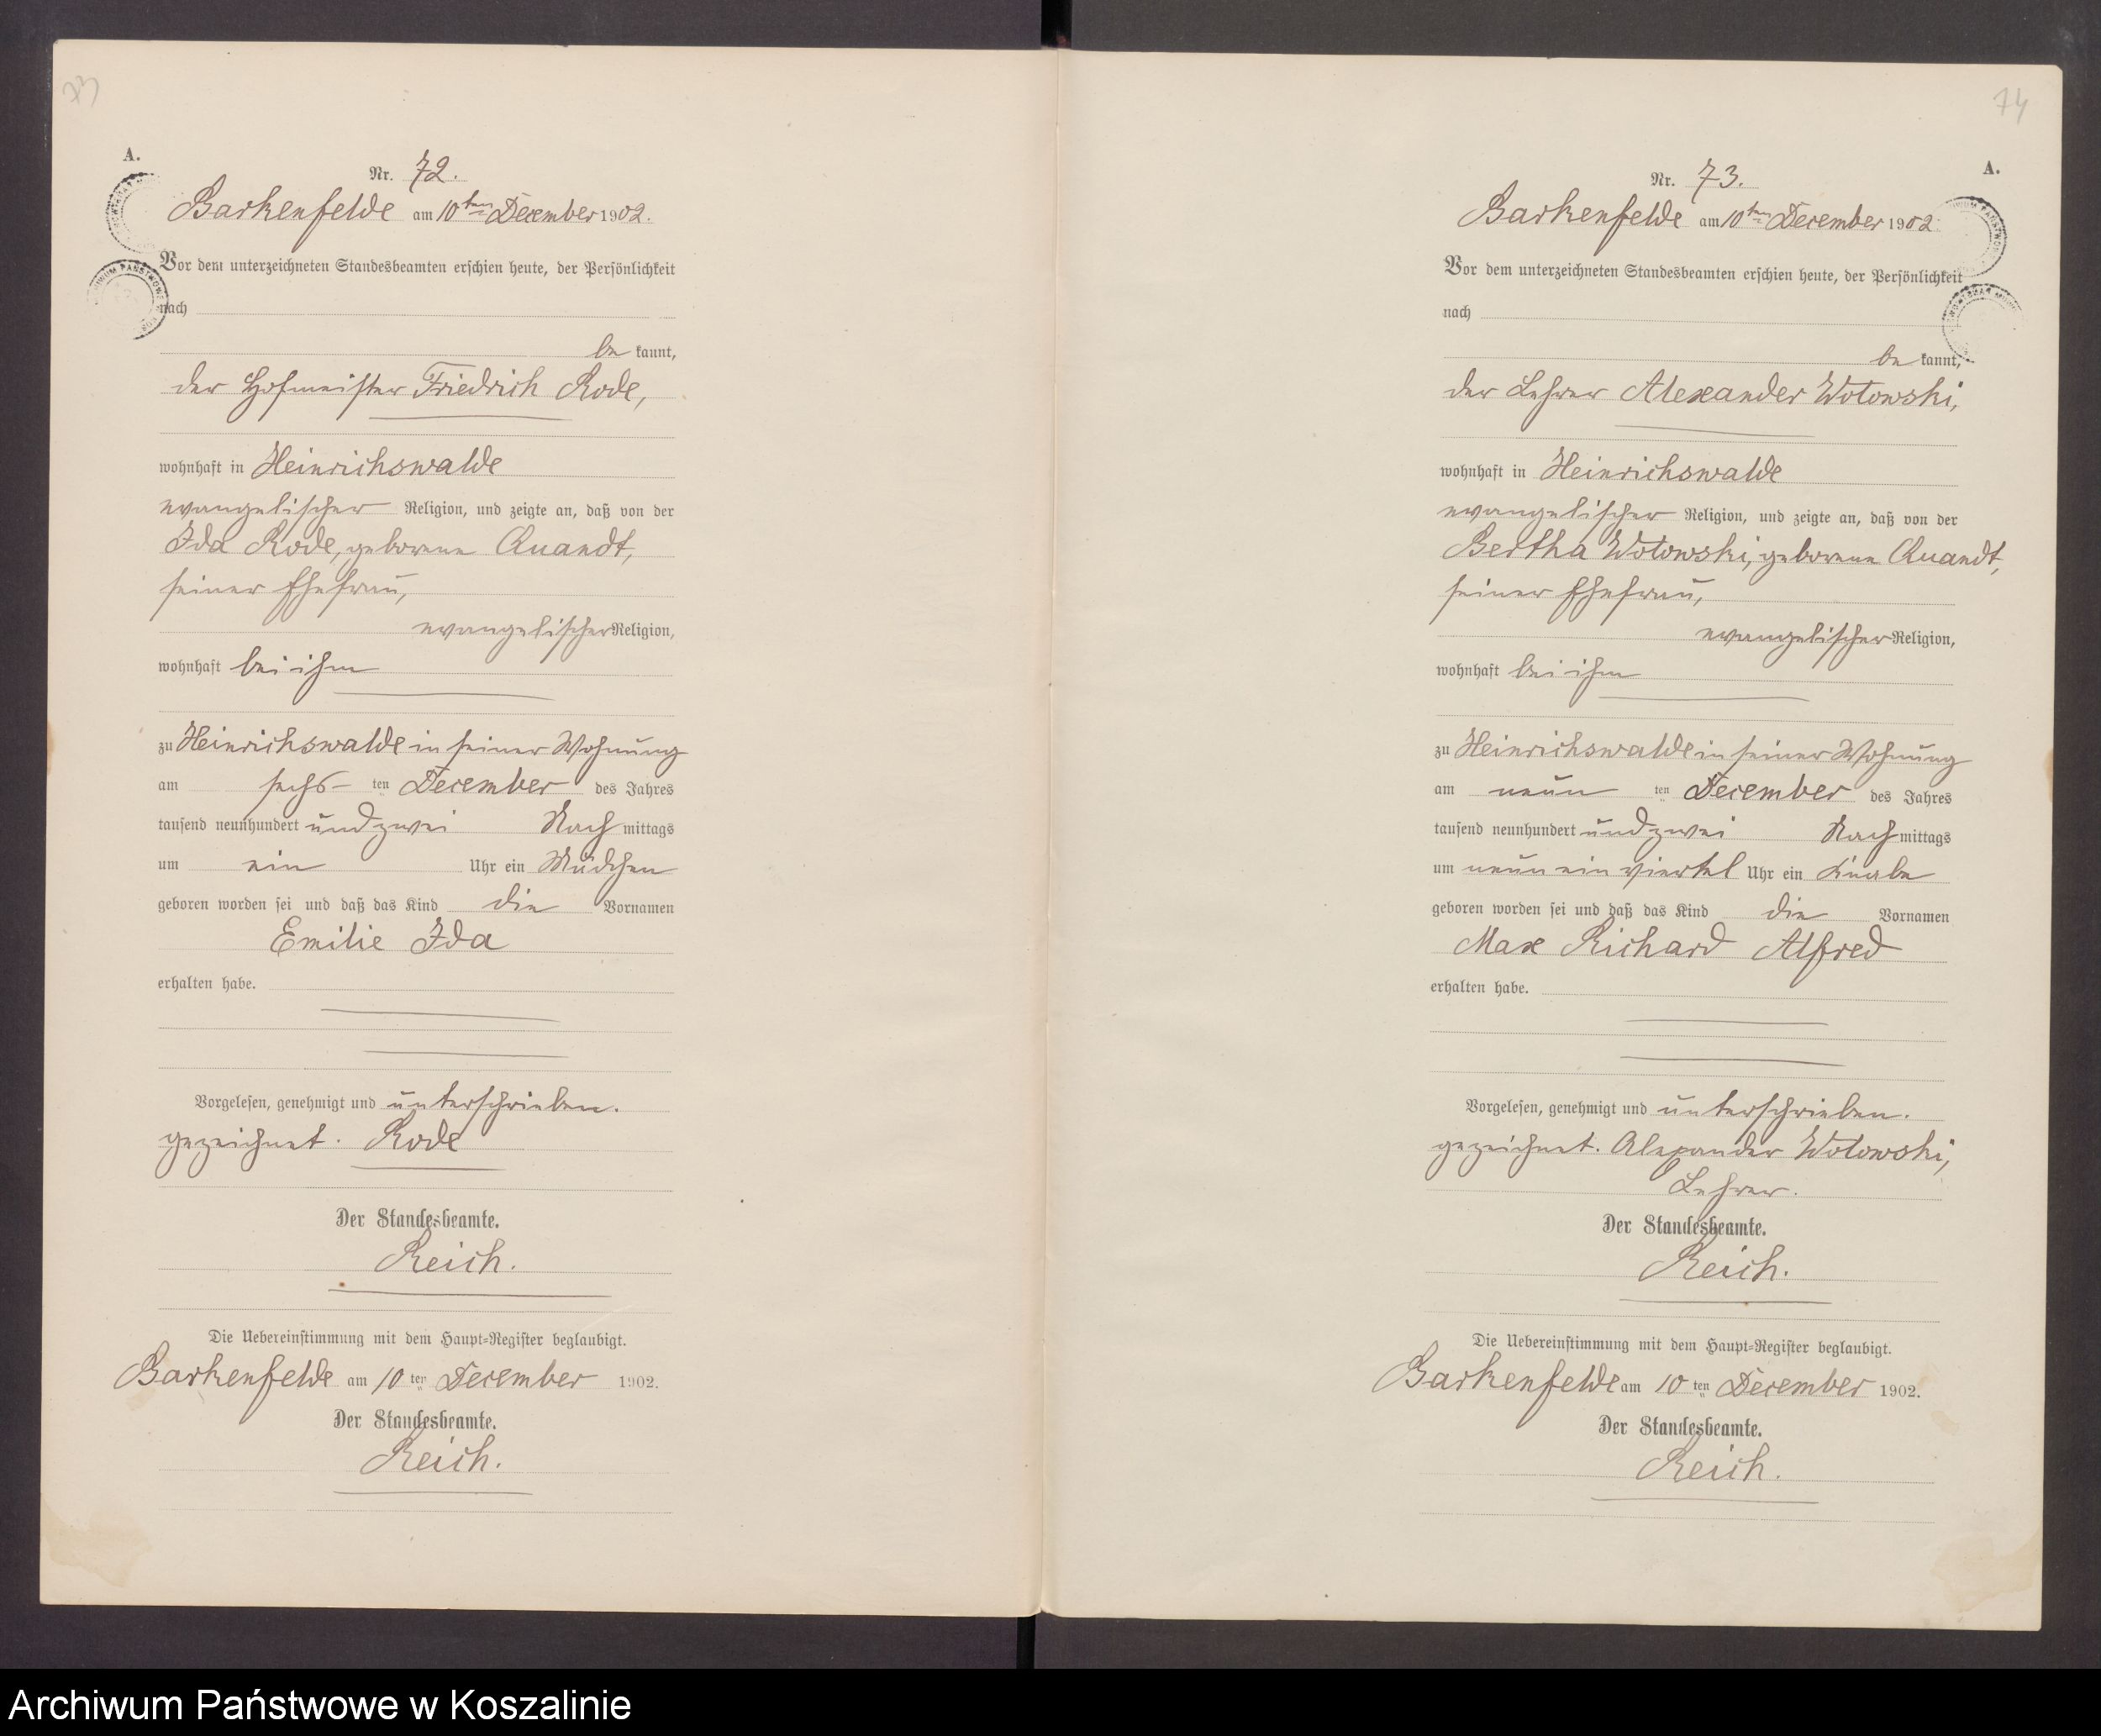 73
A.
Nr. 72.
Barkenfelde am 10ten December 1902.
Vor dem unterzeichneten Standesbeamten erschien heute, der Persönlichkeit
nach
be kannt,
der Hofmeister Friedrich Rode,
wohnhaft in Heinrichswalde
evangelischer Religion, und zeigte an, daß von der
Ida Rode, geborene Quandt,
seiner Ehefrau,
evangelischer Religion,
wohnhaft bei ihm
zu Heinrichswalde in seiner Wohnung
am sechs ten December des Jahres
tausend neunhundert und zwei Nach mittags
um ein Uhr ein Mädchen
geboren worden sei und daß das Kind die Vornamen
Emilie Ida
erhalten habe.
Vorgelesen, genehmigt und unterschrieben.
gezeichnet. Rode
Der Standesbeamte.
Reich.
Die Uebereinstimmung mit dem Haupt-Register beglaubigt.
Barkenfelde am 10 ten December 1902.
Der Standesbeamte.
Reich.
74
A.
Nr. 73.
Barkenfelde am 10ten December 1902.
Vor dem unterzeichneten Standesbeamten erschien heute, der Persönlichkeit
nach
be kannt,
der Lehrer Alexander Wotowski,
wohnhaft in Heinrichswalde
evangelischer Religion, und zeigte an, daß von der
Bertha Wotowski, geborene Quandt,
seiner Ehefrau,
evangelischer Religion,
wohnhaft bei ihm
zu Heinrichswalde in seiner Wohnung
am neun ten December des Jahres
tausend neunhundert und zwei Nach mittags
um neun ein viertel Uhr ein Knabe
geboren worden sei und daß das Kind die Vornamen
Max Richard Alfred
erhalten habe.
Vorgelesen, genehmigt und unterschrieben.
gezeichnet. Alexander Wotowski,
Lehrer.
Der Standesbeamte.
Reich.
Die Uebereinstimmung mit dem Haupt-Register beglaubigt.
Barkenfelde am 10 ten December 1902.
Der Standesbeamte.
Reich.
Archiwum Państwowe w Koszalinie